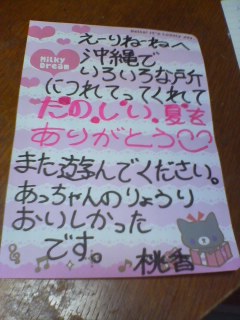 えーりねーねへ
Milky Dream
沖縄で
いろいろな所
につれてってくれて
たのしい夏☆
ありがとう♡
また遊んでください。
あっちゃんのりょうり
おいしかった
です。
桃香